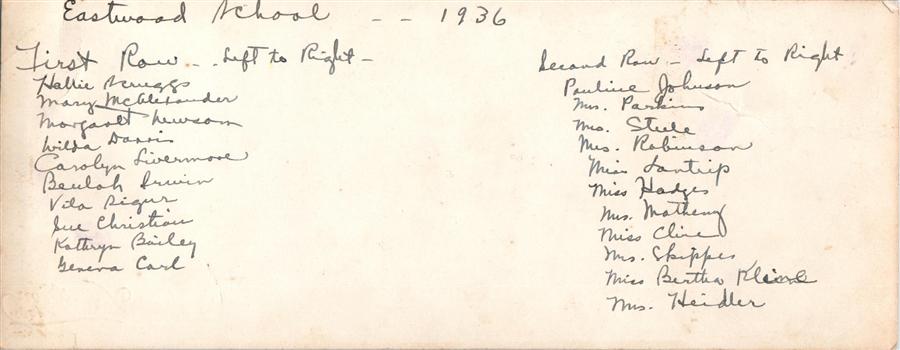 Eastwood School -- 1936
First Row - Left to Right -
Hallie Scruggs
Mary McAlexander
Margaret Newsom
Wilda Dannis
Carolyn Livermore
Beulah Irwin
Vila Sigur
Sue Christian
Kathryn Bailey
Geneva Carl
Second Row - Left to Right
Pauline Johnson
Mrs. Parkins
Mrs. Steele
Mrs. Robinson
Miss Lantrip
Miss Hadges
Mrs. Matheny
Miss Cline
Mrs. Skipper
Miss Bertha Kleine
Mrs. Heidler